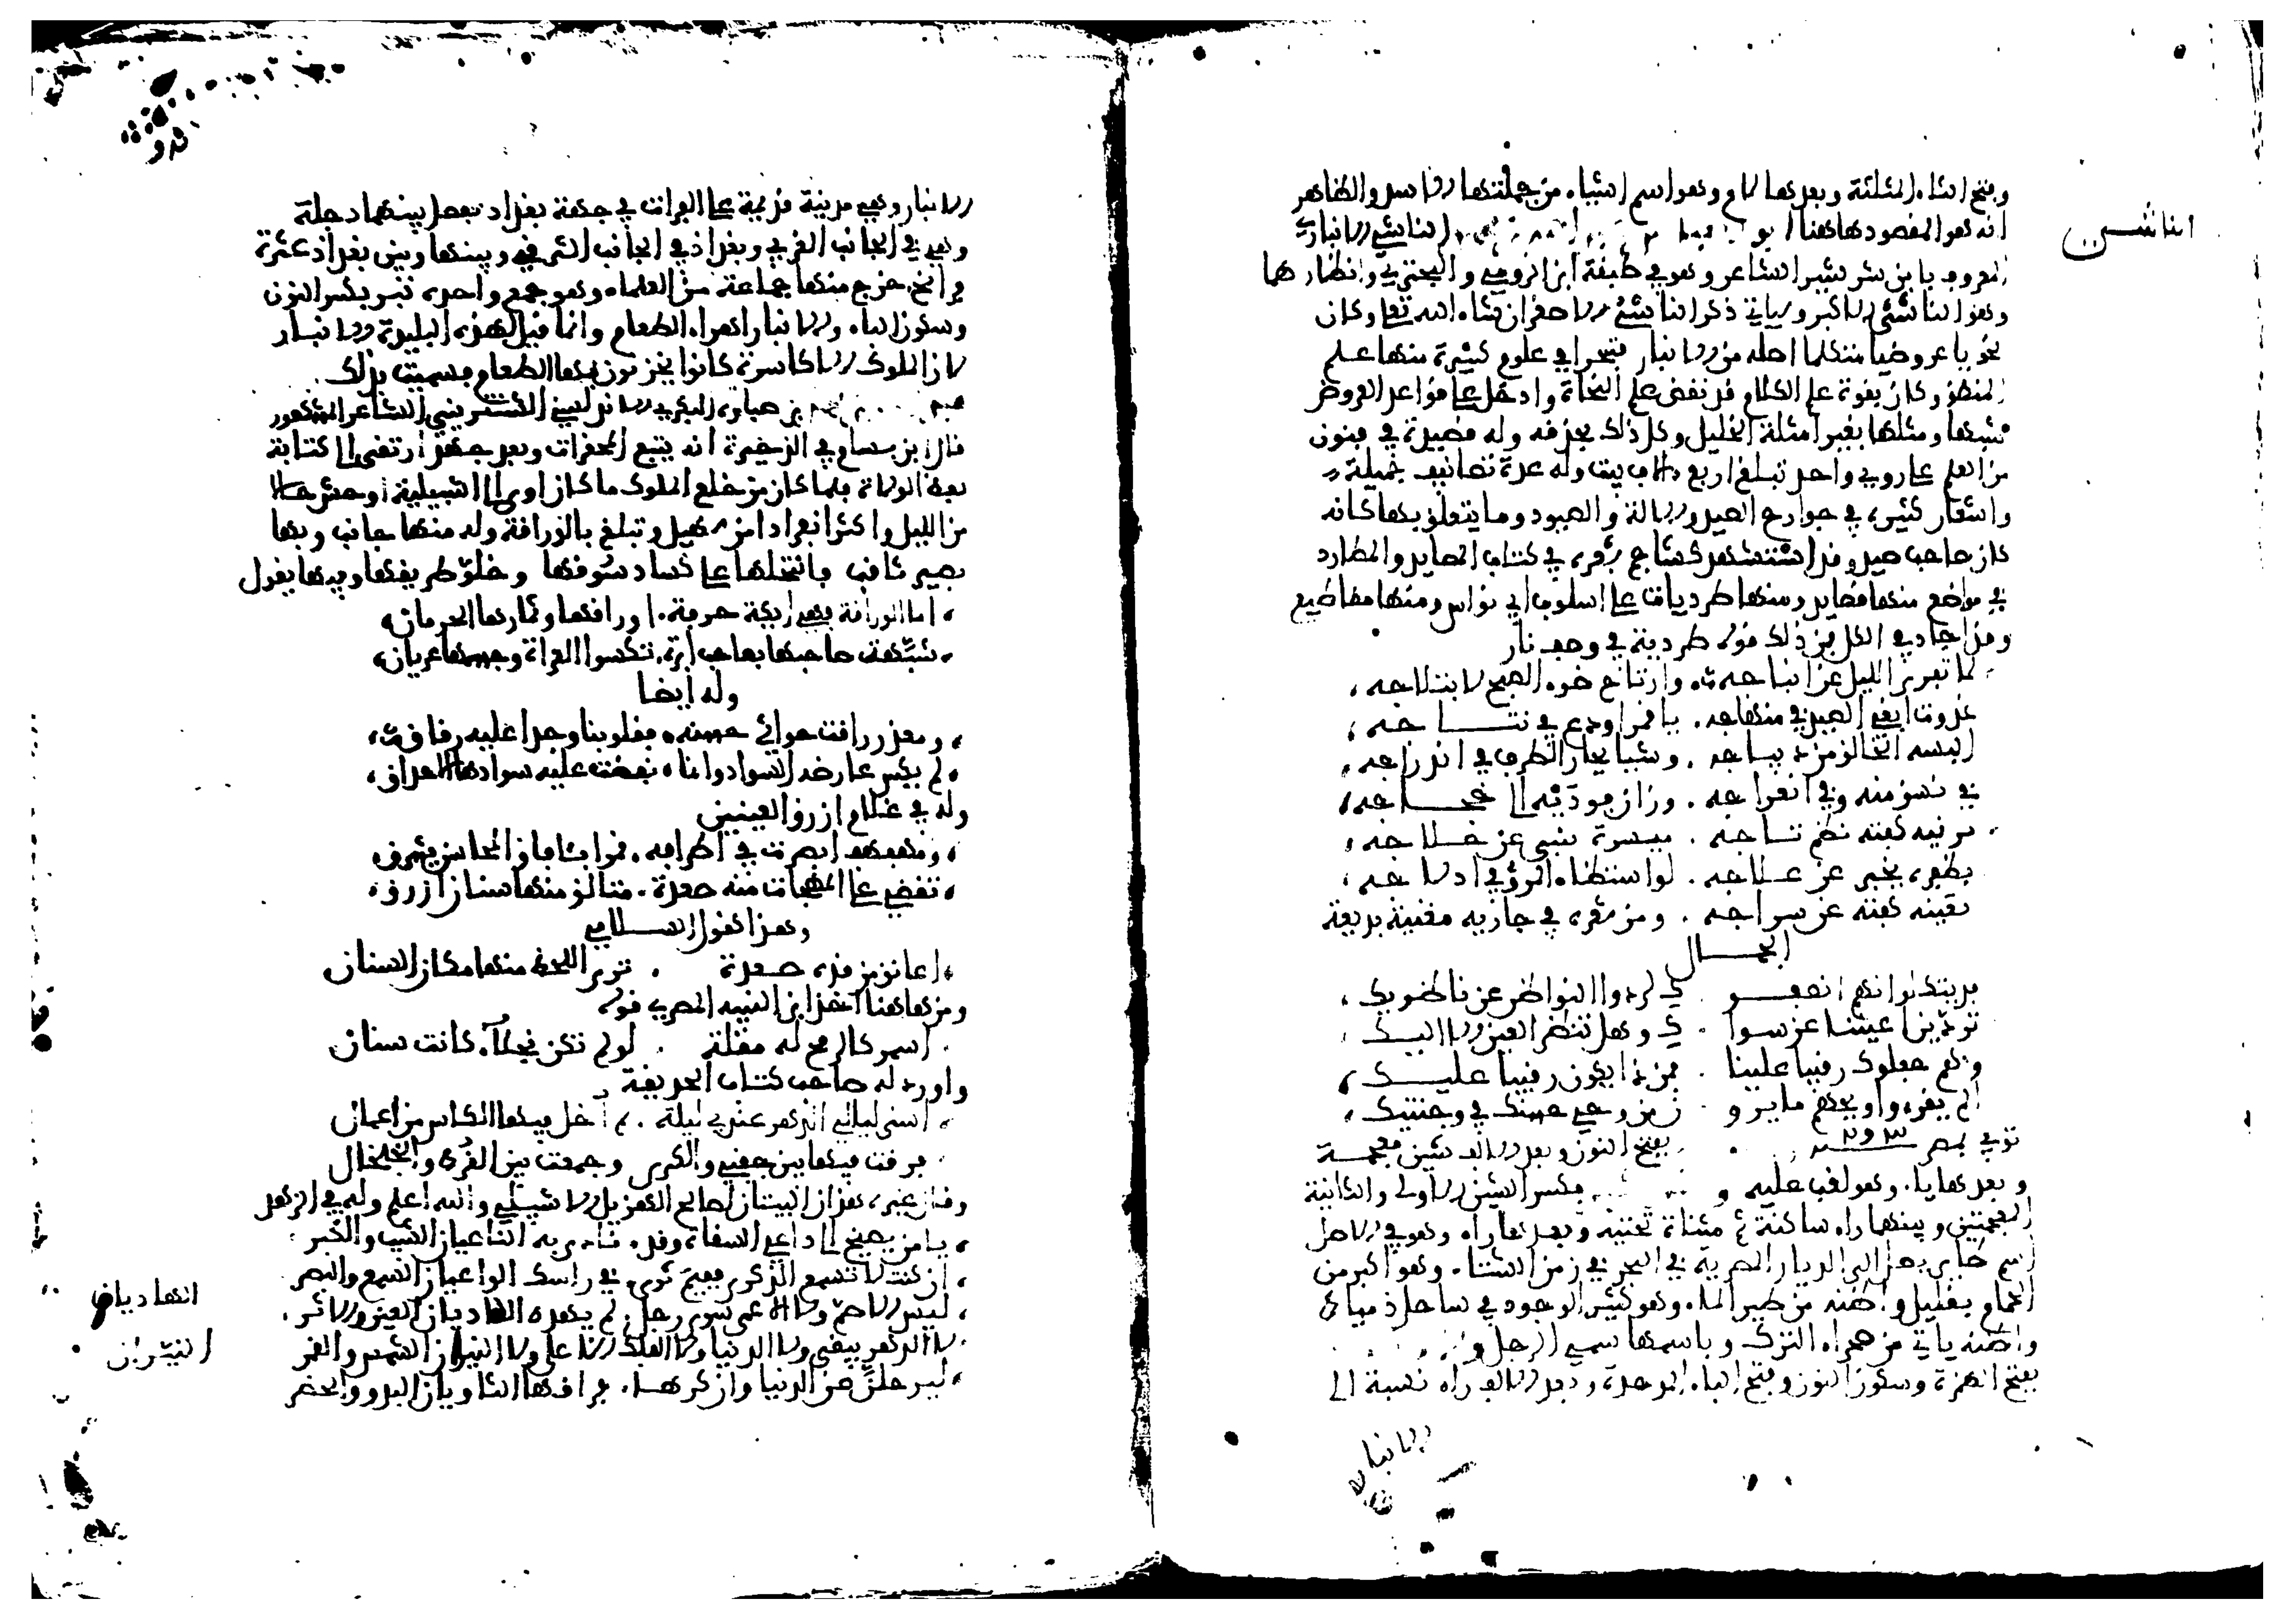 وبفتح الثاء المثلثة وبعدها لام وهو اسم اشياء من جملتها الاسد والظاهر
انه هو المقصود هاهنا ابو الناشئ الانباري
المعروف بابن شرشير الشاعر وهو في طبقة ابن الرومي والبحتري وانظارهما
وهو الناشئ الاكبر وسياتي ذكر الناشئ الاصغر ان شاء الله تعلى وكان
نحويا عروضيا متكلما اصله من الانبار متبحرا في علوم كثيرة منها علم
المنطق وكان بقوة علم الكلام قد نقض علل النحاة وادخل على قواعد العروض
شبها ومثلها بغير امثلة الخليل وكل ذلك بحذقه وله قصيدة في فنون
من العلم على روي واحد تبلغ اربع الاف بيت وله عدة تصانيف جميلة
واشعار كثيرة في جوارح الصيد والالة والصيود وما يتعلق بها كانه
كان صاحب صيد وقد استشهد كشاجم بشعره في كتاب المصايد والمطارد
في مواضع منها قصايد ومنها طرديات على اسلوب ابي نواس ومنها مقاطيع
وقد اجاد في الكل من ذلك قوله طردية في وصف باز
لما تعرى الليل عن اثباجه وارتاح ضوء الصبح لابتلاجه
غدوت ابغي الصيد في منهاجه باقمر اودع في نتاجه
البسه الخالق من ديباجه وشيا يحار الطرف في اندراجه
في نسق منه وفي انعراجه وزان فوديه الى حجاجه
بزينة كفته نظم تاجه منسره ينبي عن خلاجه
بظفره يخبر عن علاجه لو استظاء المرؤ في ادلاجه
بعينه كفته عن سراجه ومن شعره في جارية مغنية بديعة
الجمال
فديتك لو انهم انصفو ك لردوا النواظر عن ناظريك
تردين اعيننا عن سوا ك وهل تنظر العين الا اليك
وهم جعلوك رقيبا علينا فمن ذا يكون رقيبا عليك
الم يقرءوا ويحهم ما يرو ن من وحي حسنك في وجنتيك
توفي بمصر ٢٩٣ بفتح النون وبعد الالف شين معجمة
وبعدها يا وهو لقب عليه و بكسر الشين الاولى والثانية
المعجمتين وبينهما راء ساكنة ثم مثناة تحتية وبعدها راء وهو في الاصل
اسم طاير يصل الى الديار المصرية في البحر في زمن الشتاء وهو اكبر من
الحمام بقليل واظنه من طير الماء وهو كثير الوجود في ساحل دمياط
واظنه ياتي من صحراء الترك وباسمها سمي الرجل و
بفتح الهمزة وسكون النون وفتح الباء الموحدة وبعد الالف راء نسبة الى
الانبار
الناشئ
الانبار وهي مدينة قديمة على الفرات في جهة بغداد تفصل بينهما دجلة
وهي في الجانب الغربي وبغداد في الجانب الشرقي وبينها وبين بغداد عشرة
فراسخ خرج منها جماعة من العلماء وهو جمع واحده نبر بكسر النون
وسكون الباء والانبار اهراء الطعام وانما قيل لهذه البليدة الانبار
لان الملوك الاكاسرة كانوا يخزنون بها الطعام فسميت بذلك
بن صارة البكري الاندلسي الشنتريني الشاعر المشهور
قال ابن بسام في الذخيرة انه يتبع المحقرات وبعد جهد ارتقى الى كتابة
بعض الولاة فلما كان من خلع الملوك ما كان اوى الى اشبيلية اوحش حالا
من الليل واكثر انفرادا من سهيل وتبلغ بالوراقة وله منها جانب وبها
بصير ثاقب فانتحلها على كساد سوقها وخلو طريقها وفيها يقول
اما الوراقة فهي اريكة حرفة اوراقها وثمارها الحرمان
شبهت صاحبها بصاحب ابرة تكسوا العراة وجسمها عريان
وله ايضا
ومعذر رقت حواشي حسنه فقلوبنا وجدا عليه رقاق
لم يكس عارضه السواد وانما نفضت عليه سوادها الاحداق
وله في غلام ازرق العينين
ومهفهف ابصرت في اطرافه قمرا بافاق المحاسن يشرق
تقضي على المهجات منه صعدة متالق منها سنان ازرق
وهذا كقول السلامي
اعانق من قده صعدة ترى اللحظ منها مكان السنان
ومن هاهنا اخذ ابن النبيه المصري قوله
اسمر كالرمح له مقلة لو لم تكن كحلا كانت سنان
واورد له صاحب كتاب الحديقة
اسنى ليالي الدهر عندي ليلة لم اخل فيها الكاس من اعمال
فرقت فيها بين جفني والكرى وجمعت بين القرط والخلخال
وقال غيره هذان البيتان لصالح الهزيل الاشبيلي والله اعلم وله في الزهد
يا من يصيخ الى داعي السفاة وقد نادى به الناعيان الشيب والكبر
ان كنت لا تسمع الذكرى ففيم ثوى في راسك الواعيان السمع والبصر
ليس الاصم ولا الاعمى سوى رجل لم يهده الهاديان العين والاثر
لا الدهر يبقى ولا الدنيا ولا الفلك الاعلى ولا النيران الشمس والقمر
ليرحلن عن الدنيا وان كرها فراقها الثاويان البدو والحضر
الهاديان
النيران